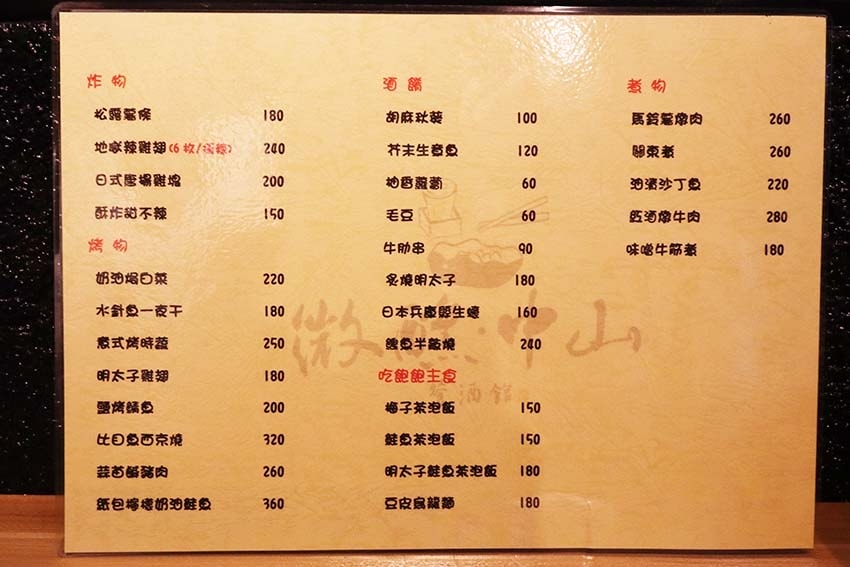 炸物
松露薯條 180
地獄辣雞翅(6枚/ 240
日式唐揚雞塊 200
酥炸甜不辣 150
烤物
奶油焗白菜 220
水針魚一夜干 180
意式烤時蔬 250
明太子雞翅 180
鹽烤鯖魚 200
比目魚西京燒 320
蒜苗鹹豬肉 260
紙包檸檬奶油鮭魚 360
酒餚
胡麻秋葵 100
芥末生章魚 120
柚香蘿蔔 60
毛豆 60
牛肋串 90
炙燒明太子 180
日本兵庫縣生蠔 160
鰹魚半敲燒 240
吃飽飽主食
梅子茶泡飯 150
鮭魚茶泡飯 150
明太子鮭魚茶泡飯 180
豆皮烏龍麵 180
煮物
馬鈴薯燉肉 260
關東煮 260
油漬沙丁魚 220
紅酒燉牛肉 280
味噌牛筋煮 180
微醺中山
餐酒館